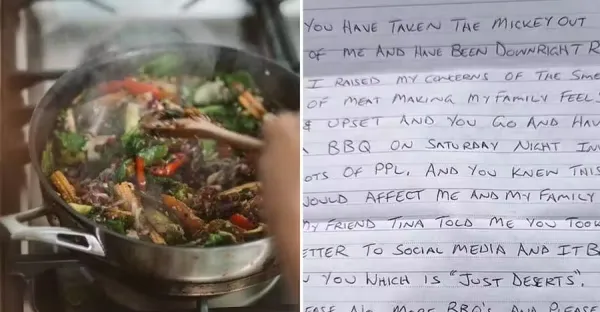 YOU HAVE TAKEN THE MICKEY OUT
OF ME AND HAVE BEEN DOWNRIGHT R
I RAISED MY CONCERNS OF THE SME
OF MEAT MAKING MY FAMILY FEEL S
& UPSET AND YOU GO AND HAV
A BBQ ON SATURDAY NIGHT INV
OTS OF PPL, AND YOU KNEW THIS
WOULD AFFECT ME AND MY FAMILY
MY FRIEND TINA TOLD ME YOU TOOK
ETTER TO SOCIAL MEDIA AND IT B
YOU WHICH IS "JUST DESERTS".
EASE NO MORE BBQ'S AND PLEASE